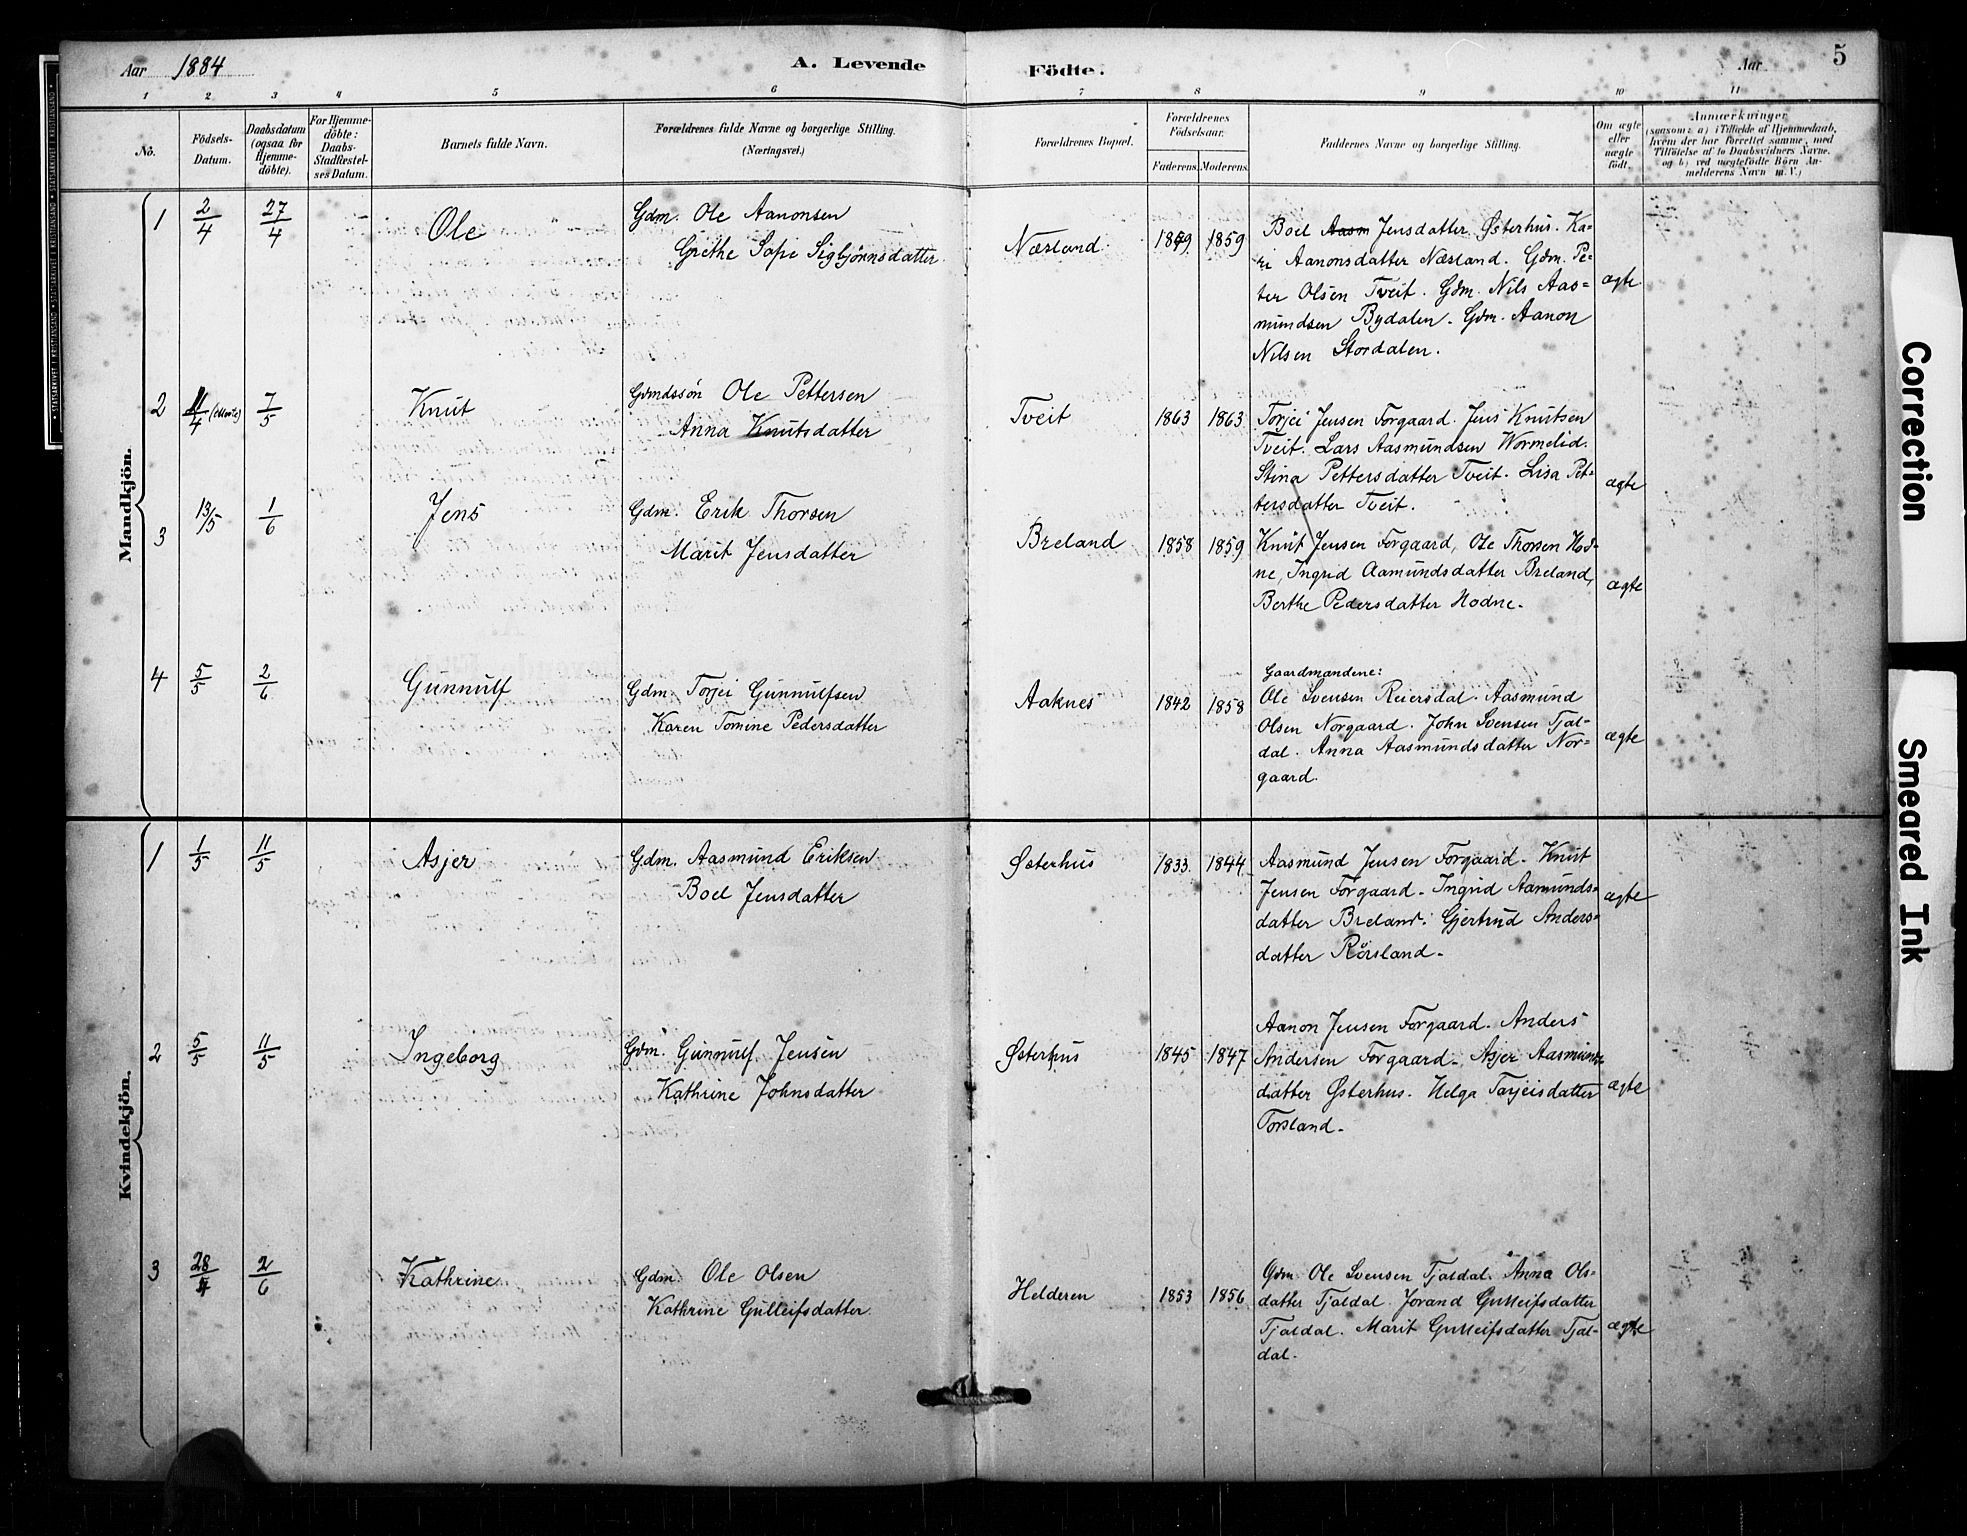 Aar 1884
A. Levende Födte.
Aar 5
1 2 3 4 5 6 7 8 9 10 11
No.
Födsels-Datum.
Daabsdatum (ogsaa for Hjemme-döbte).
For Hjemme-döbte: Daabs-Stadfæstel-ses Datum.
Barnets fulde Navn.
Forældrenes fulde Navne og borgerlige Stilling.
(Næringsvei.)
Forældrenes Bopæl.
Forældrenes Födselsaar.
Faderens. Moderens.
Faddernes Navne og borgerlige Stilling.
Om ægte eller uægte födt.
Anmærkninger
(saasom: a) i Tilfælde af Hjemmedaab,
hvem der har forrettet samme, med
Tilföielse af to Daabsvidners Navne.
og b) ved uægtefödte Börn An-
melderens Navn m. V.)
Mandkjön.
1 2/4 27/4 Ole
Gdm. Ole Aanonsen
Grethe Sofie Sigbjørnsdatter
Næsland 1859 1859
Boel Aasm Jensdatter Østerhus. Ka-
ri Aanonsdatter Næsland. Gdm. Pe-
ter Olsen Tveit. Gdm. Nils Aas-
mundsen Bydalen. Gdm. Aanon
Nilsen Stordalen.
ægte
2 11/4 7/5 Knut
Gdmdssøn Ole Pettersen
Anna Knutsdatter
Tveit 1863 1863
Torjei Jensen Forgaard. Jens Knutsen
Tveit. Lars Aasmundsen Wormelid.
Stina Pettersdatter Tveit. Lisa Pet-
tersdatter Tveit.
ægte
3 13/5 1/6 Jens
Gdm. Erik Thorsen
Marit Jensdatter
Breland 1858 1859
Knut Jensen Forgaard, Ole Thorsen Hod-
ne, Ingrid Aamundsdatter Breland,
Berthe Pedersdatter Hodne.
ægte
4 5/5 2/6 Gunnulf
Gdm. Torjei Gunnulfsen
Karen Tomine Pedersdatter
Aaknes 1842 1858
Gaardmændene:
Ole Svensen Reiersdal. Aasmund
Olsen Norgaard. John Svensen Tjal-
dal. Anna Aasmundsdatter Nor-
gaard.
ægte
Kvindekjön.
1 1/5 11/5 Asjer
Gdm. Aasmund Eriksen
Boel Jensdatter
Østerhus 1833 1844
Aasmund Jensen Forgaard. Knut
Jensen Forgaard. Ingrid Aamunds-
datter Breland. Gjertrud Anders-
datter Rörsland.
ægte
2 5/5 11/5 Ingeborg
Gdm. Gunnulf Jensen
Kathrine Johnsdatter
Østerhus 1845 1847
Aanon Jensen Forgaard. Anders
Andersen Forgaard. Asjer Aasmunds-
datter Østerhus. Helga Tarjeisdatter
Torsland.
ægte
3 28/4 2/6 Kathrine
Gdm. Ole Olsen
Kathrine Gulleifsdatter
Helderen 1853 1856
Gdm. Ole Svensen Tjaldal. Anna Ols-
datter Tjaldal. Jorand Gulleifsdatter
Tjaldal. Marit Gulleifsdatter Tjal-
dal.
ægte
Correction
Smeared Ink
STATSARKIVET I KRISTIANSAND